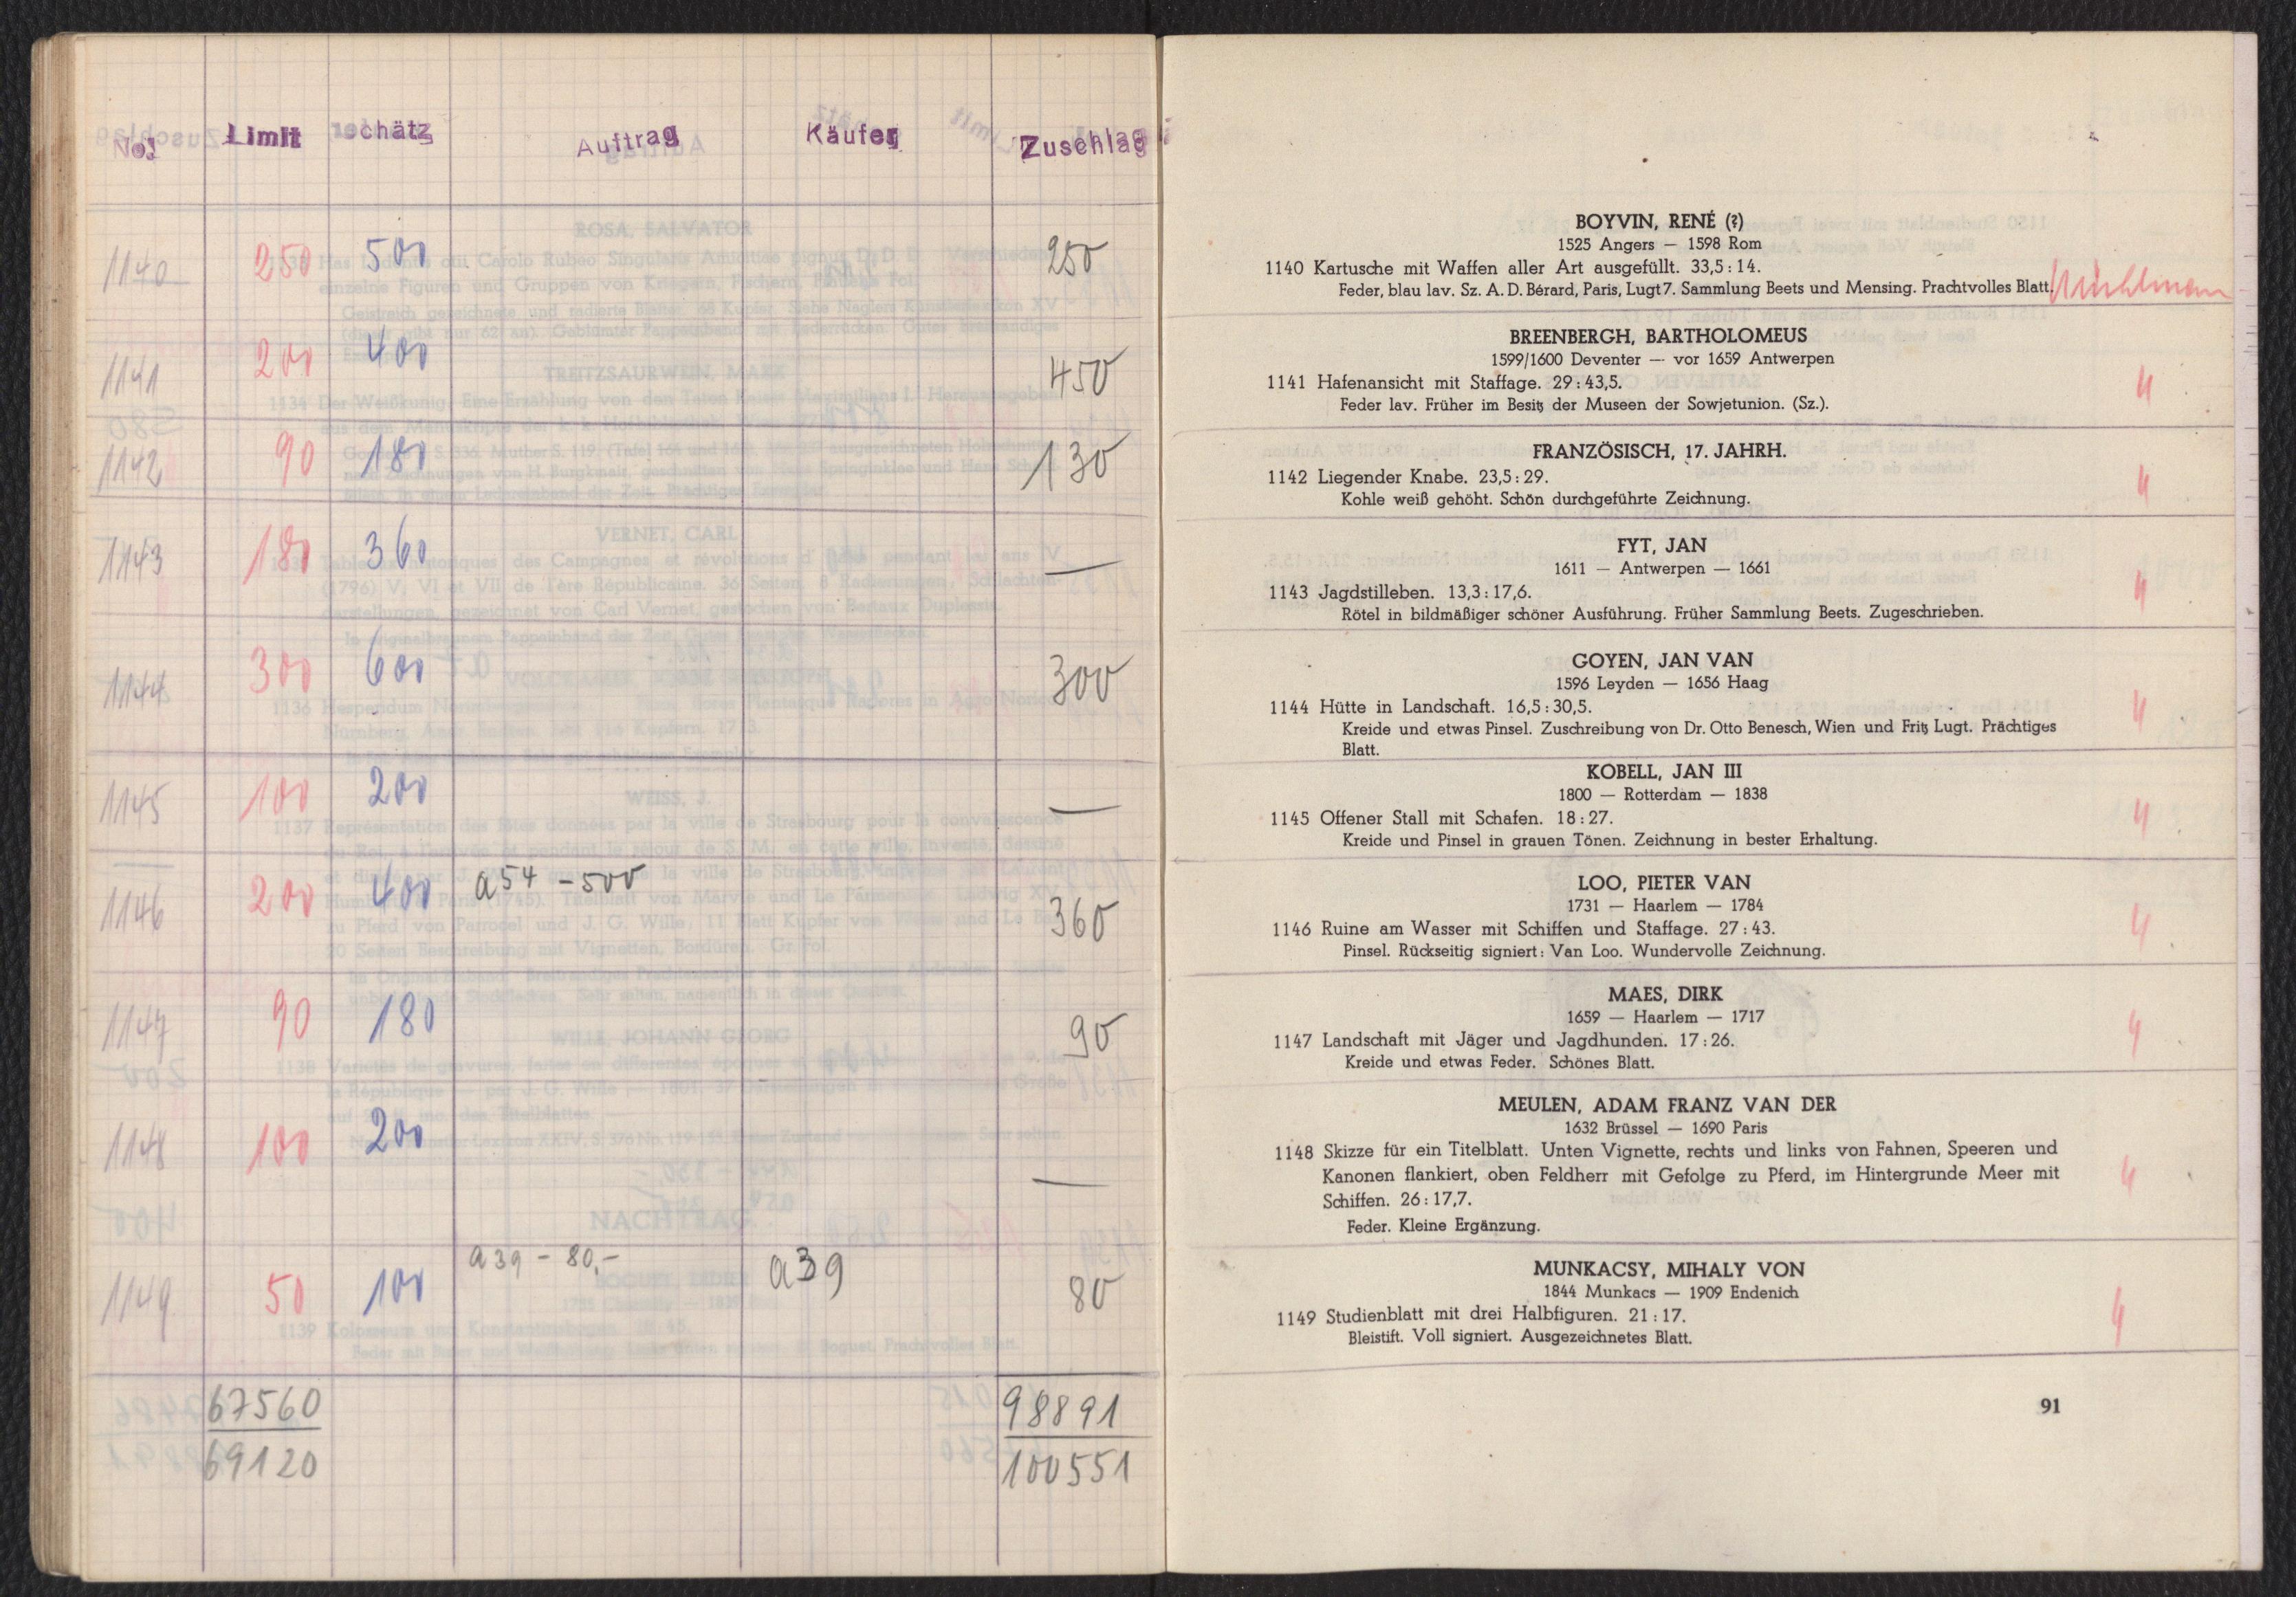 No. Limit Schätz Auftrag Käufer Zuschlag
1140 250 500 250
1141 200 400 450
1142 90 180 130
1143 180 360 —
1144 300 600 300
1145 100 200 —
1146 200 400 a54 - 500 360
1147 90 180 90
1148 100 200 —
1149 50 100 a39 - 80,- a39 80
67560 98891
69120 100551
BOYVIN, RENÉ (?)
1525 Angers — 1598 Rom
1140 Kartusche mit Waffen aller Art ausgefüllt. 33,5 : 14.
Feder, blau lav. Sz. A. D. Bérard, Paris, Lugt 7. Sammlung Beets und Mensing. Prachtvolles Blatt.
BREENBERGH, BARTHOLOMEUS
1599/1600 Deventer — vor 1659 Antwerpen
1141 Hafenansicht mit Staffage. 29 : 43,5.
Feder lav. Früher im Besitz der Museen der Sowjetunion. (Sz.).
FRANZÖSISCH, 17. JAHRH.
1142 Liegender Knabe. 23,5 : 29.
Kohle weiß gehöht. Schön durchgeführte Zeichnung.
FYT, JAN
1611 — Antwerpen — 1661
1143 Jagdstilleben. 13,3 : 17,6.
Rötel in bildmäßiger schöner Ausführung. Früher Sammlung Beets. Zugeschrieben.
GOYEN, JAN VAN
1596 Leyden — 1656 Haag
1144 Hütte in Landschaft. 16,5 : 30,5.
Kreide und etwas Pinsel. Zuschreibung von Dr. Otto Benesch, Wien und Fritz Lugt. Prächtiges
Blatt.
KOBELL, JAN III
1800 — Rotterdam — 1838
1145 Offener Stall mit Schafen. 18 : 27.
Kreide und Pinsel in grauen Tönen. Zeichnung in bester Erhaltung.
LOO, PIETER VAN
1731 — Haarlem — 1784
1146 Ruine am Wasser mit Schiffen und Staffage. 27 : 43.
Pinsel. Rückseitig signiert: Van Loo. Wundervolle Zeichnung.
MAES, DIRK
1659 — Haarlem — 1717
1147 Landschaft mit Jäger und Jagdhunden. 17 : 26.
Kreide und etwas Feder. Schönes Blatt.
MEULEN, ADAM FRANZ VAN DER
1632 Brüssel — 1690 Paris
1148 Skizze für ein Titelblatt. Unten Vignette, rechts und links von Fahnen, Speeren und
Kanonen flankiert, oben Feldherr mit Gefolge zu Pferd, im Hintergrunde Meer mit
Schiffen. 26 : 17,7.
Feder. Kleine Ergänzung.
MUNKACSY, MIHALY VON
1844 Munkacs — 1909 Endenich
1149 Studienblatt mit drei Halbfiguren. 21 : 17.
Bleistift. Voll signiert. Ausgezeichnetes Blatt.
91